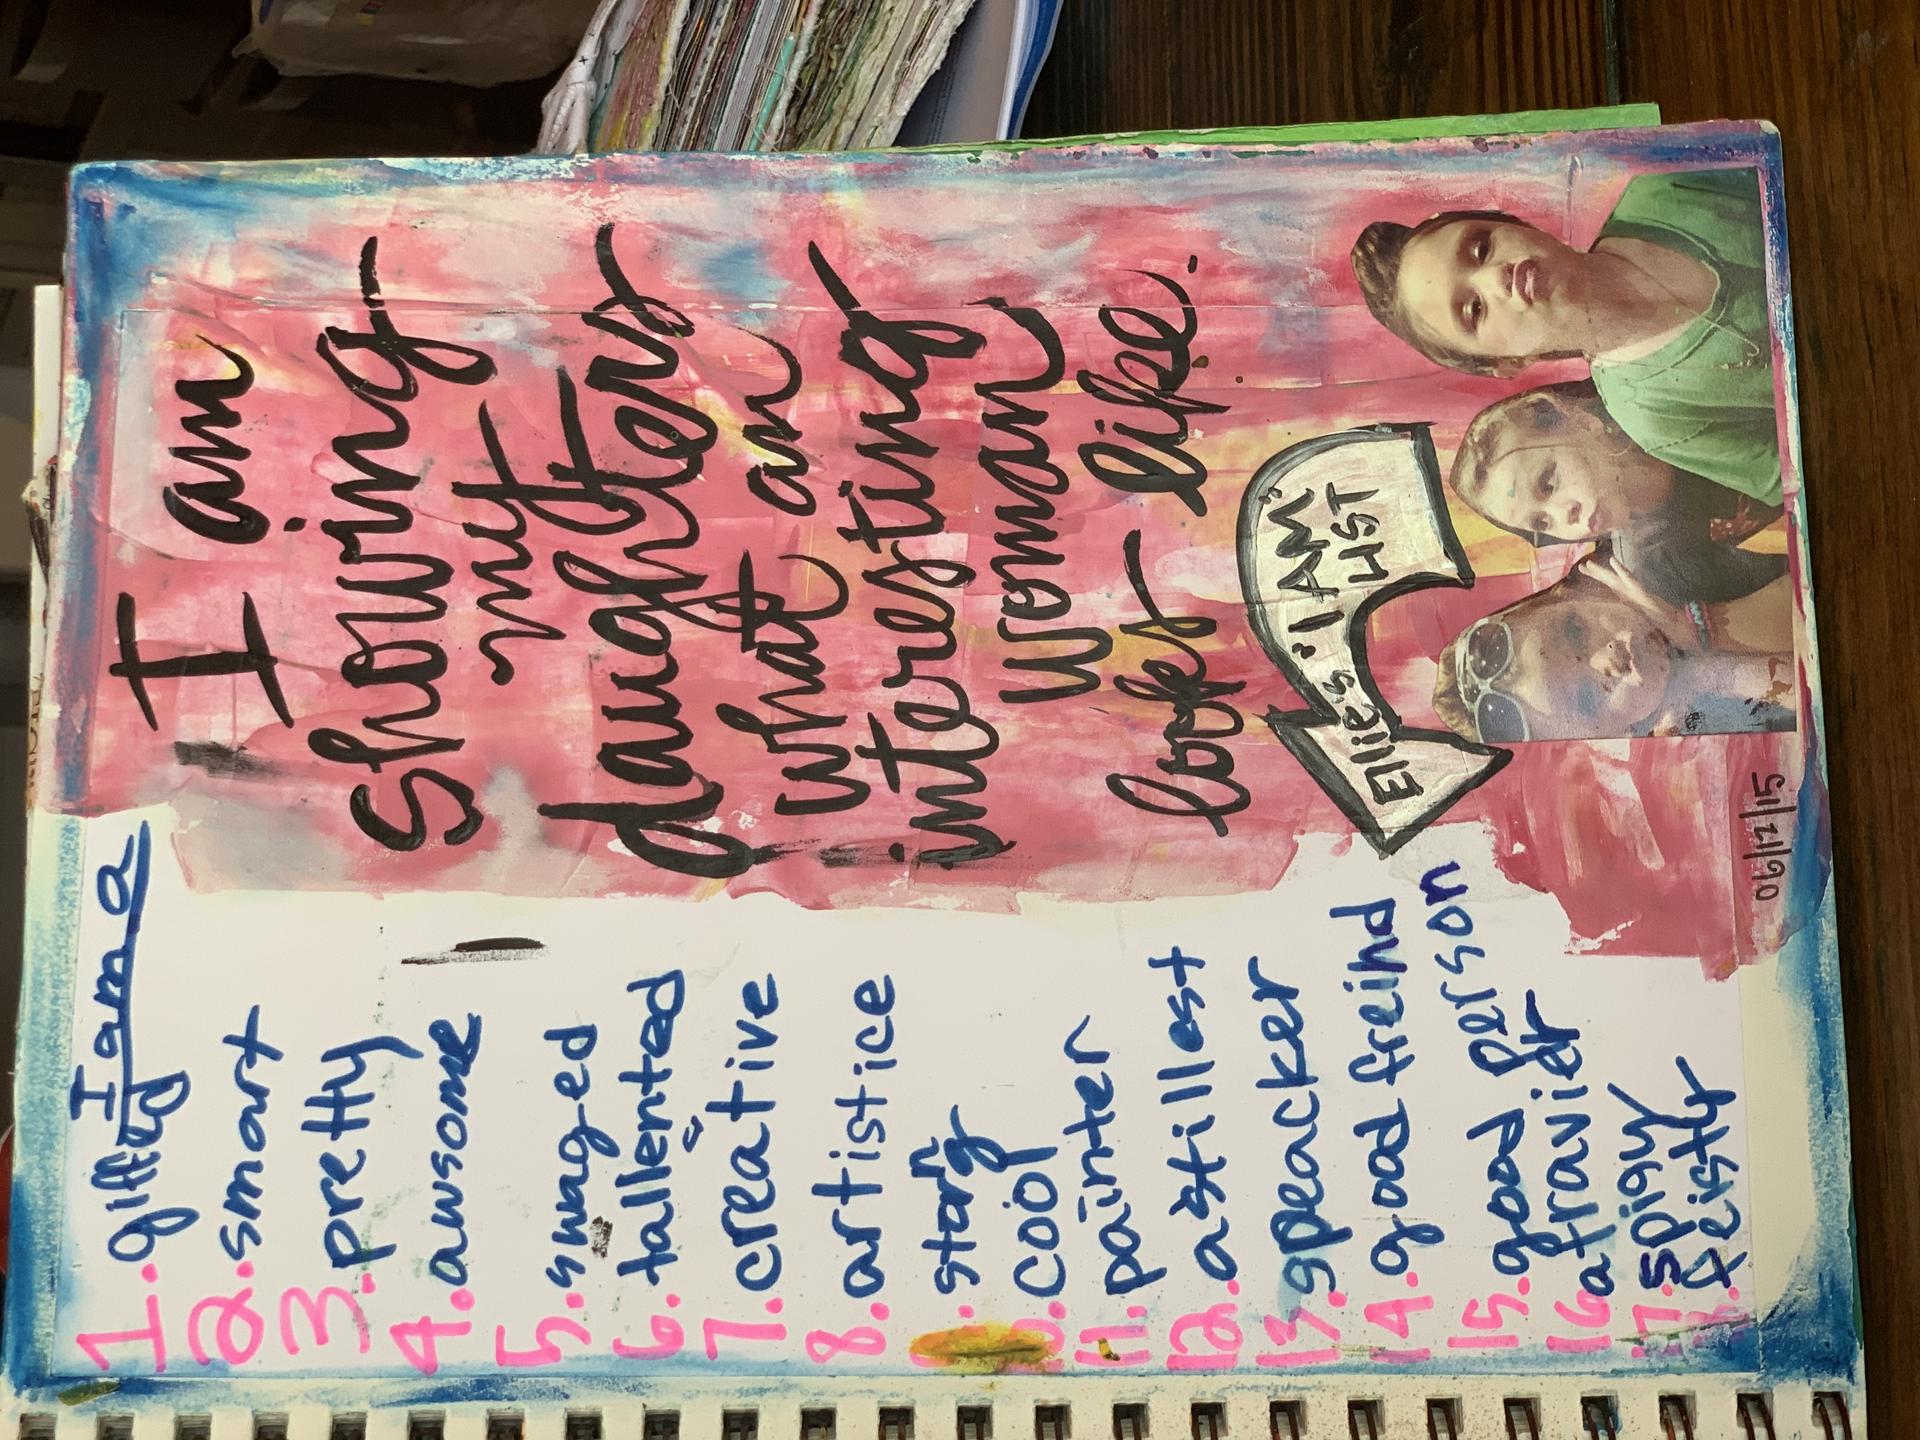 I am a
1. gifted
2. smart
3. pretty
4. awsome
5. swaged
6. tallented
7. creative
8. artistice
stang
cool
11. painter
12. astillast
13. speacker
14. good freind
15. good person
16. afravier
17. spigy
feisty
I am
showing
my
daughters
what an
interesting
woman
looks like.
Ellies "I AM"
LIST
06/12/15